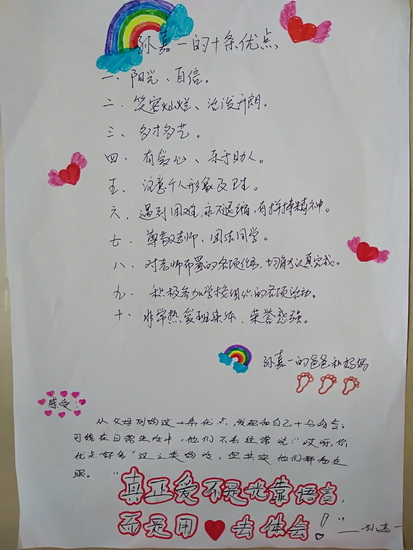 孙嘉一的十条优点
一、阳光、自信。
二、笑容灿烂、活泼开朗。
三、多才多艺。
四、有爱心、乐于助人。
五、注意个人形象及卫生。
六、遇到困难,永不退缩,有拼搏精神。
七、尊敬老师、团结同学。
八、对老师布置的各项任务,均能认真完成。
九、积极参加学校组织的各项活动。
十、非常热爱班集体,荣誉感强。
孙嘉一的爸爸和妈妈
感受:
从父母列的这十条优点,发现和自己十分吻合。
可能在日常生活中,他们不会经常说"哎呀,你
优点好多"这之类的话,但其实他们都看在
眼。
"真正爱不是光靠语言,
而是用 去体会!"
——孙嘉一